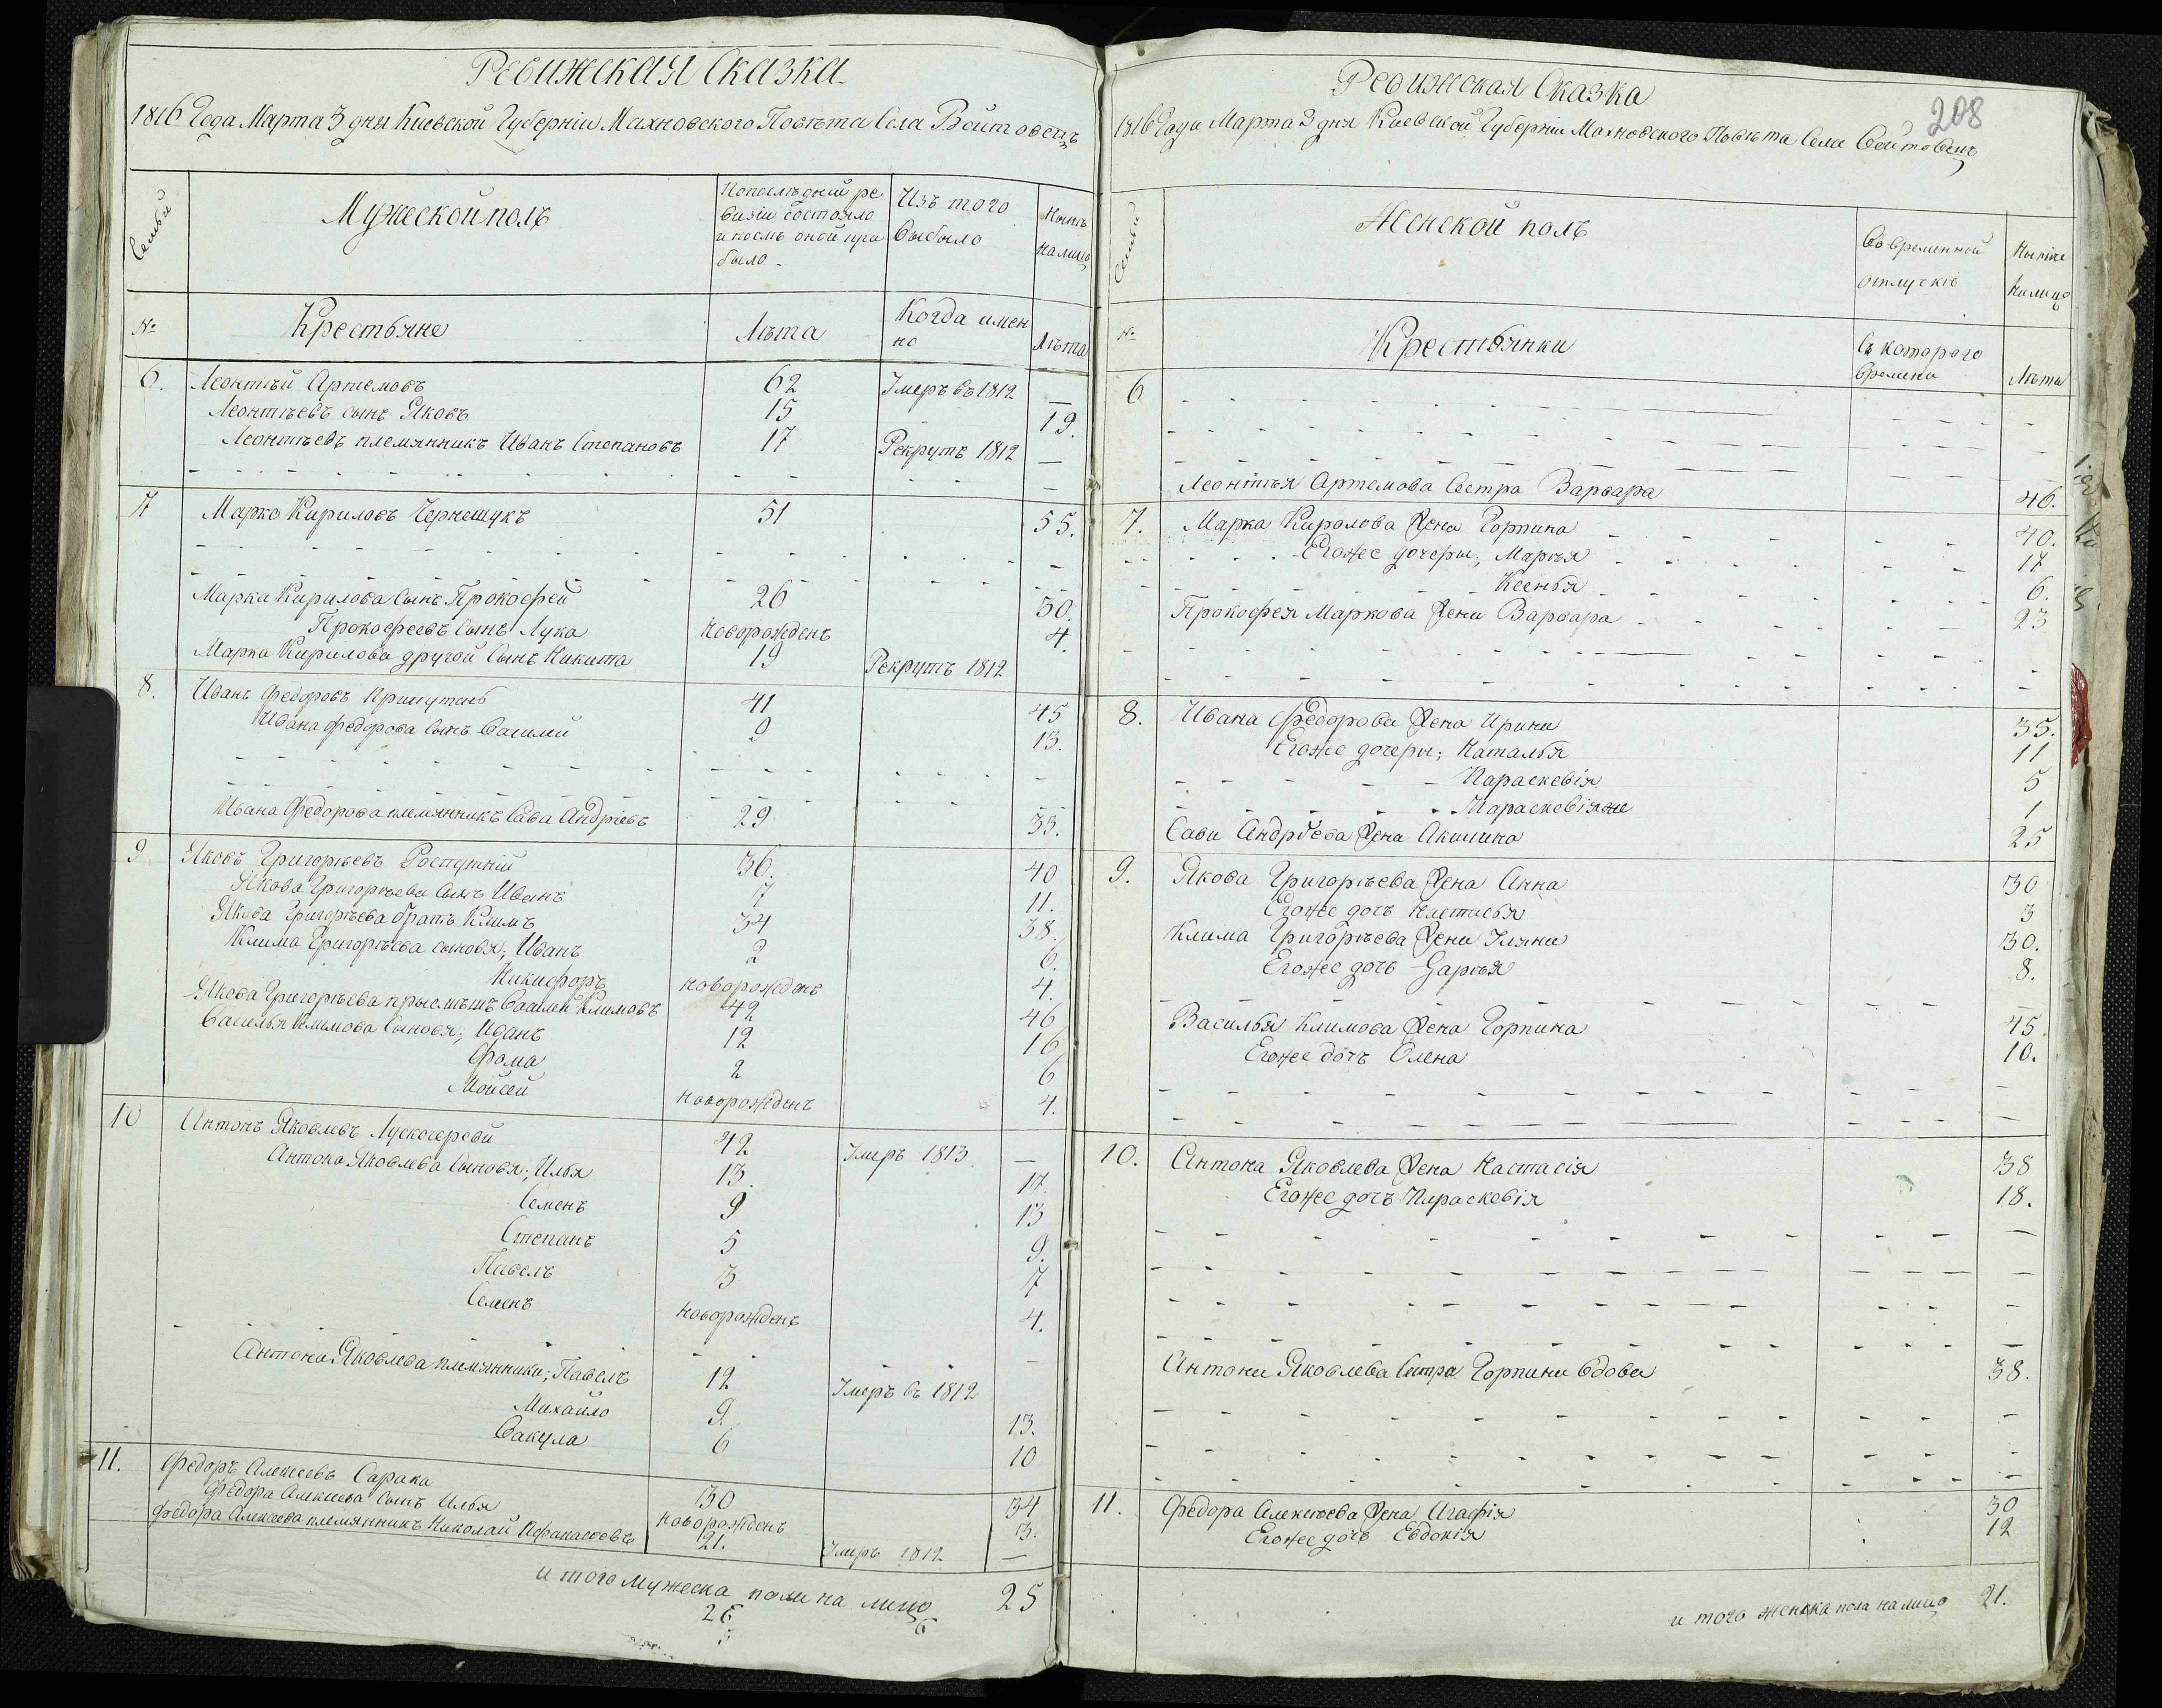 Ревижская Сказка
1816 Года Марта 3 дня Киевской Губерніи Махновского Повѣта Села Войтовецъ
Семьи
Мужеской полъ
По послѣдней ре
визіи состояло
и послѣ оной при
было
Изъ того
выбыло
Нынѣ
налицо
№
Крестьяне
Лѣта
Когда имен
но
Лѣта
6. Леонтий Артемовъ 62 Умеръ въ 1812 —
Леонтѣевъ сынъ Яковъ 15 19.
Леонтѣевъ племянникъ Иванъ Степановъ 17 Рекрутъ 1812 —
7 Марко Кириловъ Чернещукъ 51 55.
Марка Кирилова Сынъ Прокофей 26 30.
Прокофеевъ Сынъ Лука новорожденъ 4.
Марка Кирилова другой Сынъ Никита 19 Рекрутъ 1812
8. Иванъ Федоровъ Припутень 41 45
Ивана Федорова Сынъ Василий 9 13.
Ивана Федорова племянникъ Сава Андріевъ 29 33.
9 Яковъ Григорѣевъ Роспутній 36. 40
Якова Григорѣева Сынъ Иванъ 7 11.
Якова Григорѣева братъ Климъ 34 38.
Клима Григорѣева сыновя; Иванъ 2 6.
Никифоръ новорожденъ 4.
Якова Григорѣева приемышъ Василей Климовъ 42 46
Василья Климова Сыновя; Иванъ 12 16
Фома 2 6
Мойсей новорожденъ 4.
10 Антонъ Яковлевъ 42 Умеръ 1813 —
Антона Яковлева Сыновя; Илья 13. 17.
Семенъ 9 13
Степанъ 5 9.
Павелъ 3 7
Семенъ новорожденъ 4.
Антона Яковлева племянники; Павелъ 12 Умеръ въ 1812
Михайло 9 13.
Вакула 6 10
11. Федоръ Алексеевъ Сарака 30 34
Федора Алексеева Сынъ Илья новорожденъ 3.
Федора Алексеева племянникъ Николай Афанасовъ 21. Умеръ 1812 —
и того мужеска пола на лицо 25
26
6
Ревижская Сказка
208
1816 Года Марта 3 дня Киевской Губерніи Махновского Повѣта Села Войтовецъ
Семьи
Женской полъ
Во временной
отлучкѣ
Нынѣ
налицо
№
Крестьянки
Съ которого
времени
Лѣта
6
Леонтѣя Артемова Сестра Варвара 46.
7. Марка Кирилова Жена Горпина 40.
Егоже дочери; Марѣя 17
Ксенья 6.
Прокофея Маркова Жена Варвара 23
8. Ивана Федорова Жена Ирина 35.
Егоже дочери; Наталья 11
Параскевія 5
Параскевія же 1
Савы Андрѣева Жена Акилина 25
9. Якова Григорѣева Жена Анна 30
Егоже дочъ Настасья 3
Клима Григорѣева Жена Уляна 30.
Егоже дочъ Дарѣя 8.
Василья Климова Жена Горпина 45
Егоже дочъ Олена 10.
10. Антона Яковлева Жена Настасія 38
Егоже дочъ Параскевія 18.
Антона Яковлева Сестра Горпина вдова 38.
11. Федора Алексѣева Жена Агафія 30
Егоже дочъ Евдокія 12
и того женска пола налицо 21.